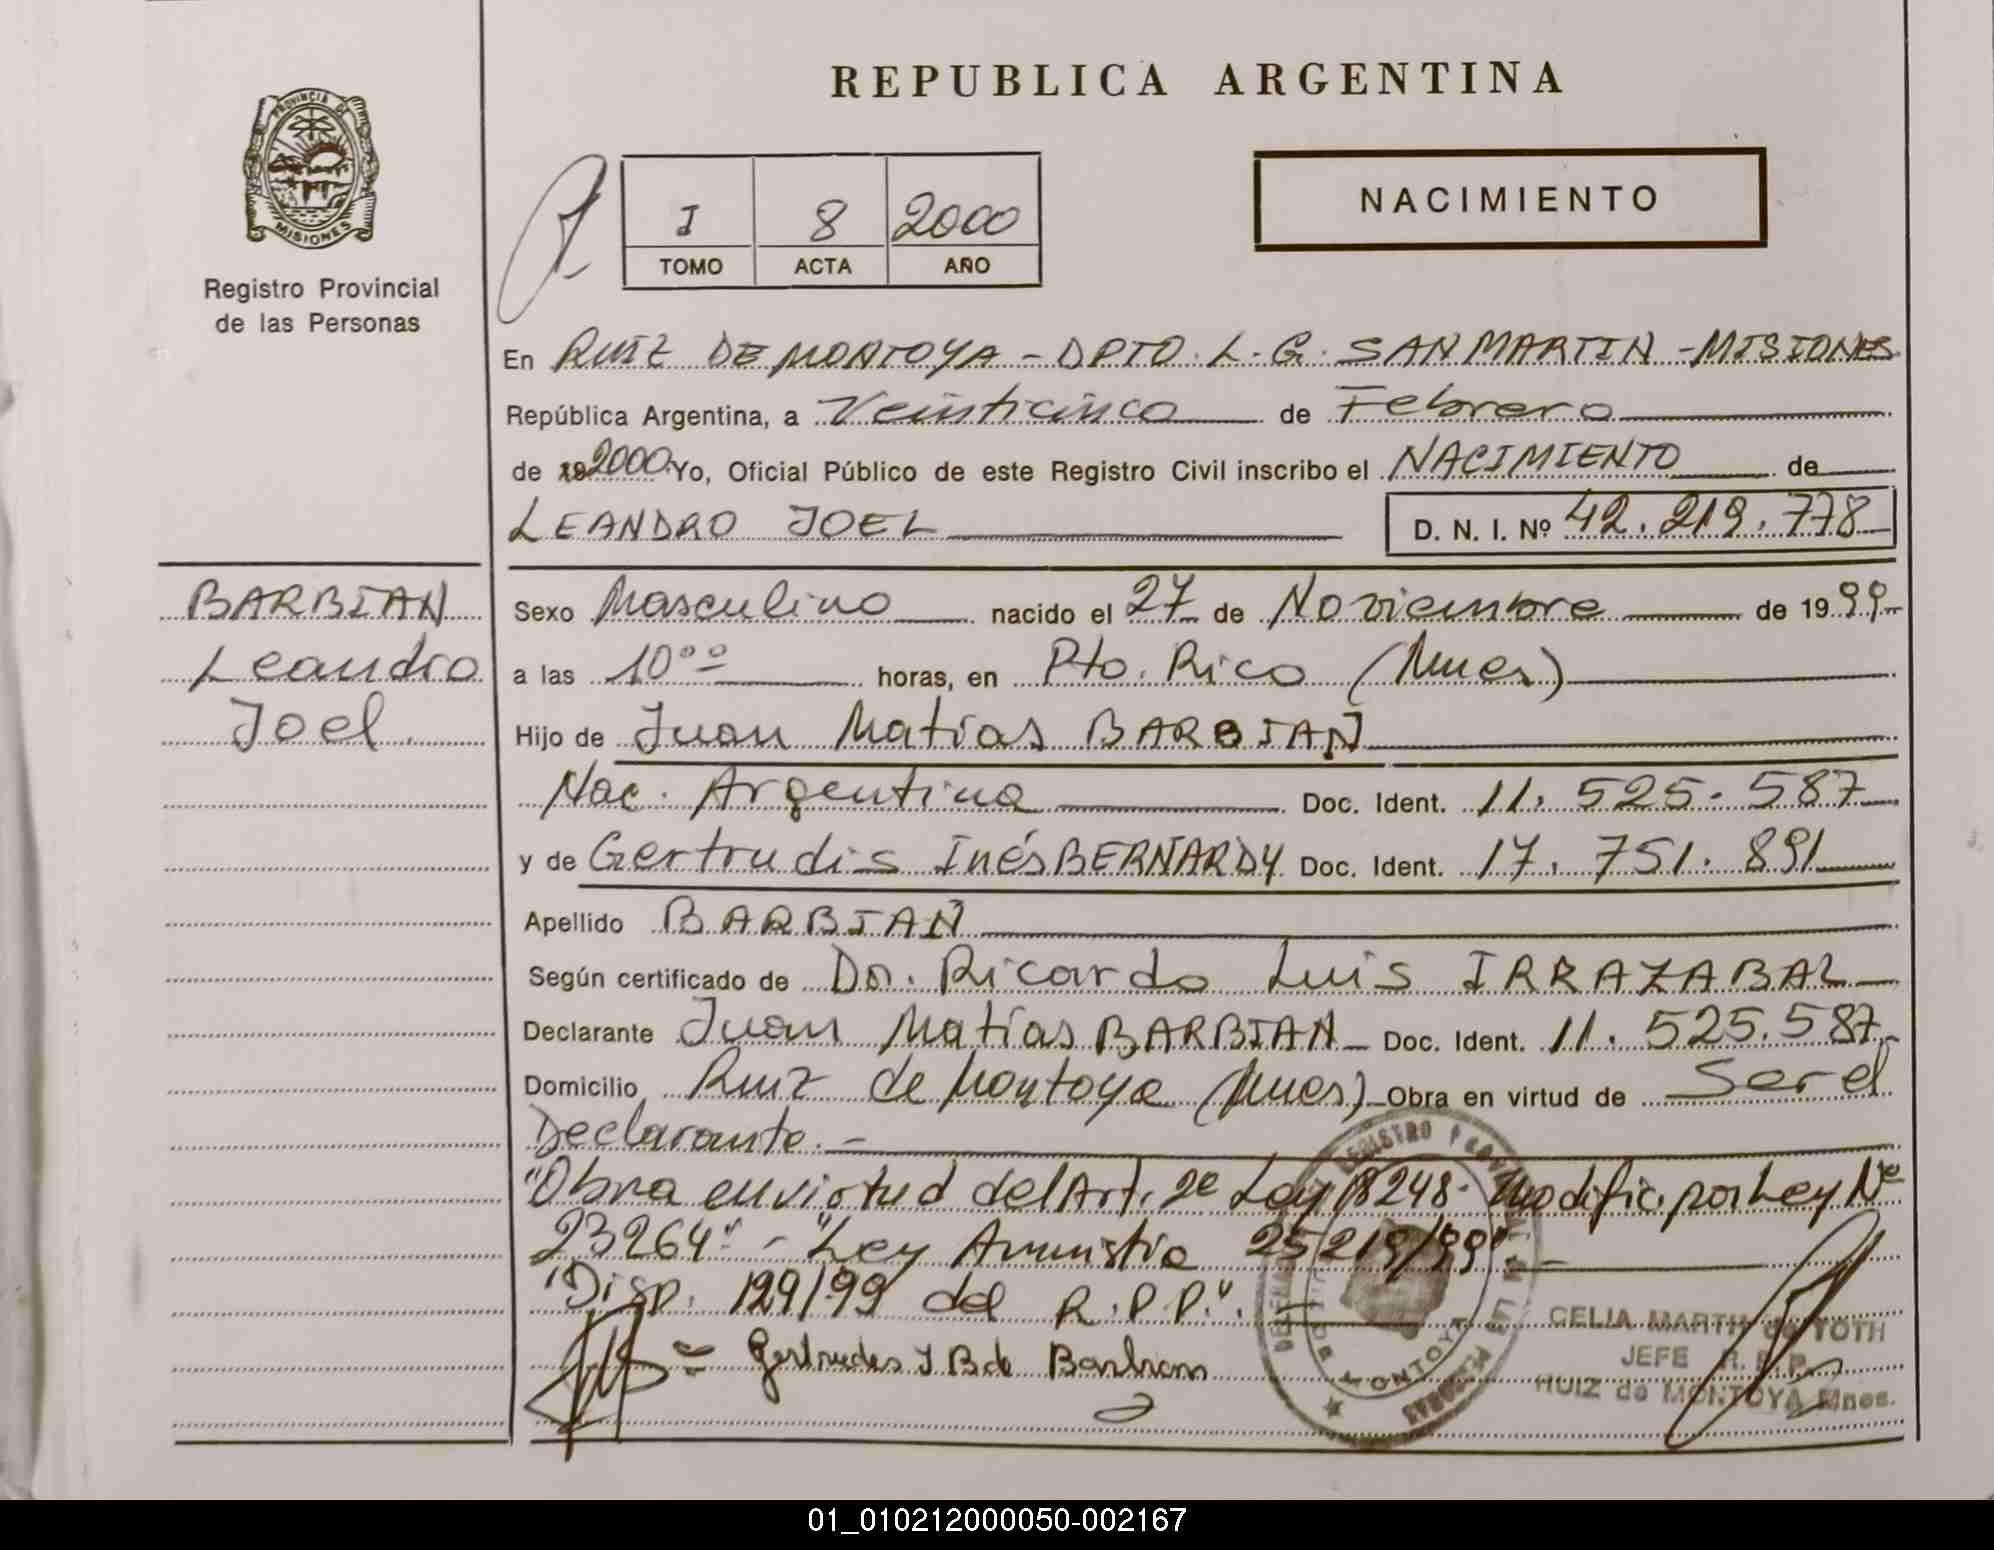 REPUBLICA ARGENTINA
PROVINCIA DE
MISIONES
Registro Provincial
de las Personas
I 8 2000
TOMO ACTA AÑO
NACIMIENTO
En RUIZ DE MONTOYA - DPTO. L. G. SAN MARTIN - MISIONES
República Argentina, a Veinticinco de Febrero
de 19 2000 Yo, Oficial Público de este Registro Civil inscribo el NACIMIENTO de
LEANDRO JOEL D. N. I. Nº 42.219.778
BARBIAN
Leandro
Joel.
Sexo Masculino nacido el 27 de Noviembre de 1999
a las 10ºº horas, en Pto. Rico (Mnes)
Hijo de Juan Matías BARBIAN
Nac. Argentina Doc. Ident. 11. 525. 587
y de Gertrudis Inés BERNARDY Doc. Ident. 17. 751. 891
Apellido BARBIAN
Según certificado de Dr. Ricardo Luis IRRAZABAL
Declarante Juan Matías BARBIAN Doc. Ident. 11. 525.587
Domicilio Ruiz de Montoya (Mnes) Obra en virtud de Ser el
Declarante. -
"Obra en virtud del Art. 2º Ley 18248- Modific. por Ley Nº
23264" - "Ley Amnistia 25219/99" -
"Disp. 129/99 del R.P.P.". -
Gertrudes I B de Barbian
REGISTRO PROVINCIAL DE LAS PERSONAS
MONTOYA
CELIA MARTH de TOTH
JEFE R. P. P.
RUIZ de MONTOYA Mnes.
01_010212000050-002167